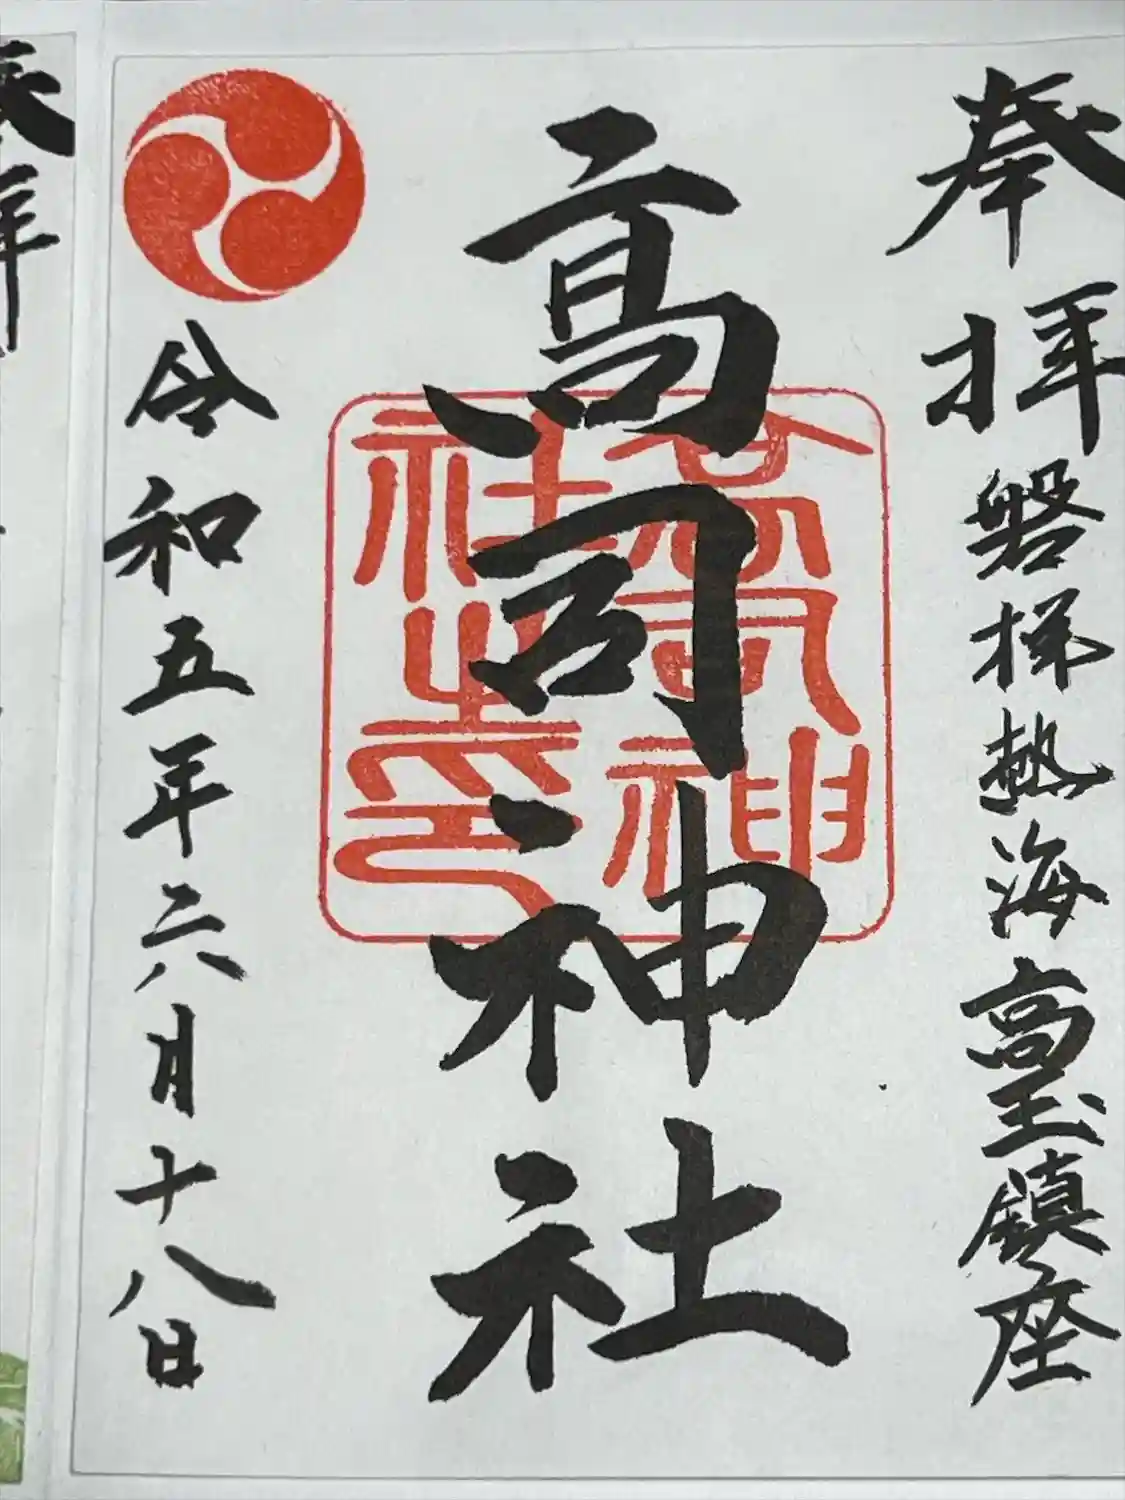 奉拝
磐梯熱海高玉鎮座
高司神社
高司神社之印
令和五年六月十八日
奉拝